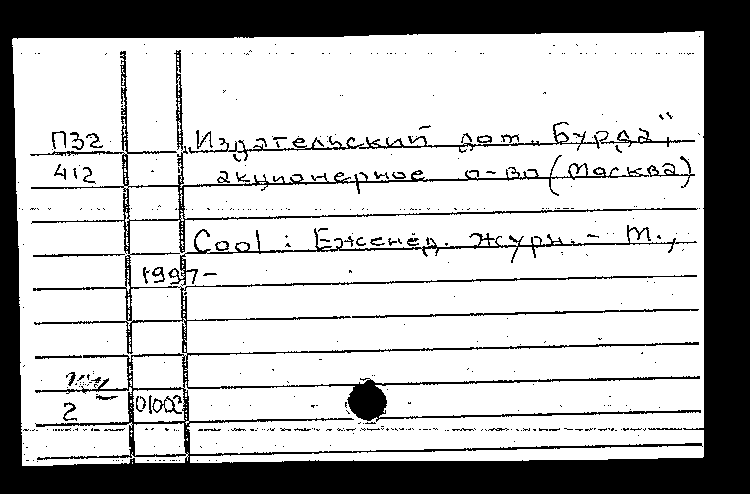 П32 „Издательский дом „Бурда“,
412 акционерное о-во (Москва)
Cool : Еженед. журн. - М.,
1997-
2 01003